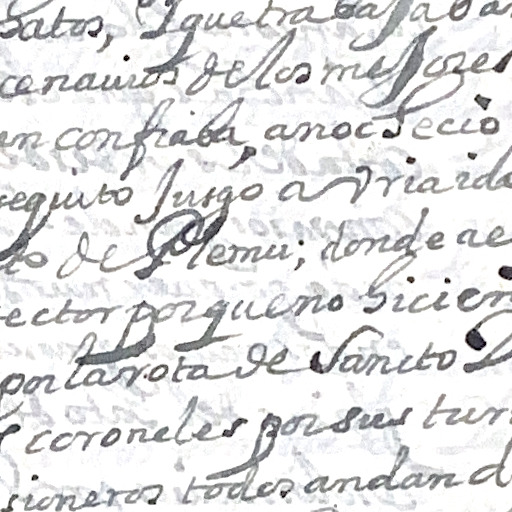 batos, Y que trabajaban
cenarios de los mejores
an confiaba, anochecio
sequito Jusgo a Vria ida
to de Plemu; donde ae
rector porque no hicier
por la rota de Sancto D
coroneles por sus tur
sioneros todos andand